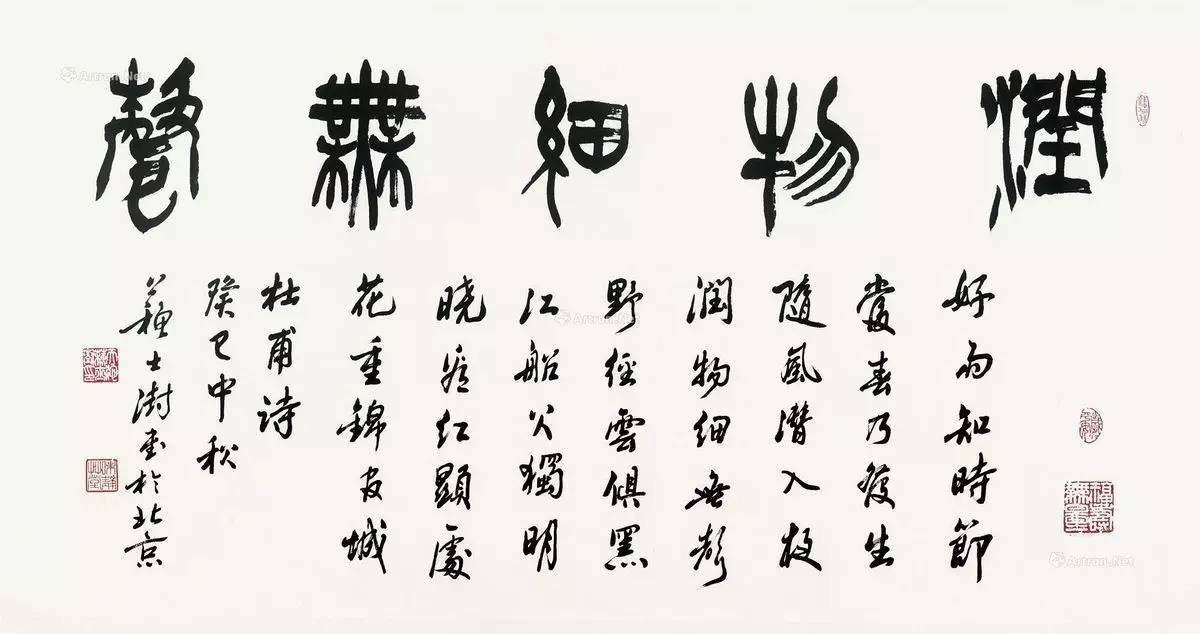 潤物細無聲
好雨知時節
當春乃發生
隨風潛入夜
潤物細無聲
野徑雲俱黑
江船火獨明
曉看紅顯處
花重錦官城
杜甫詩
癸巳中秋
蘇士澍書於北京
福壽無量
Artron.Net
Artron.Net
Artron.Net